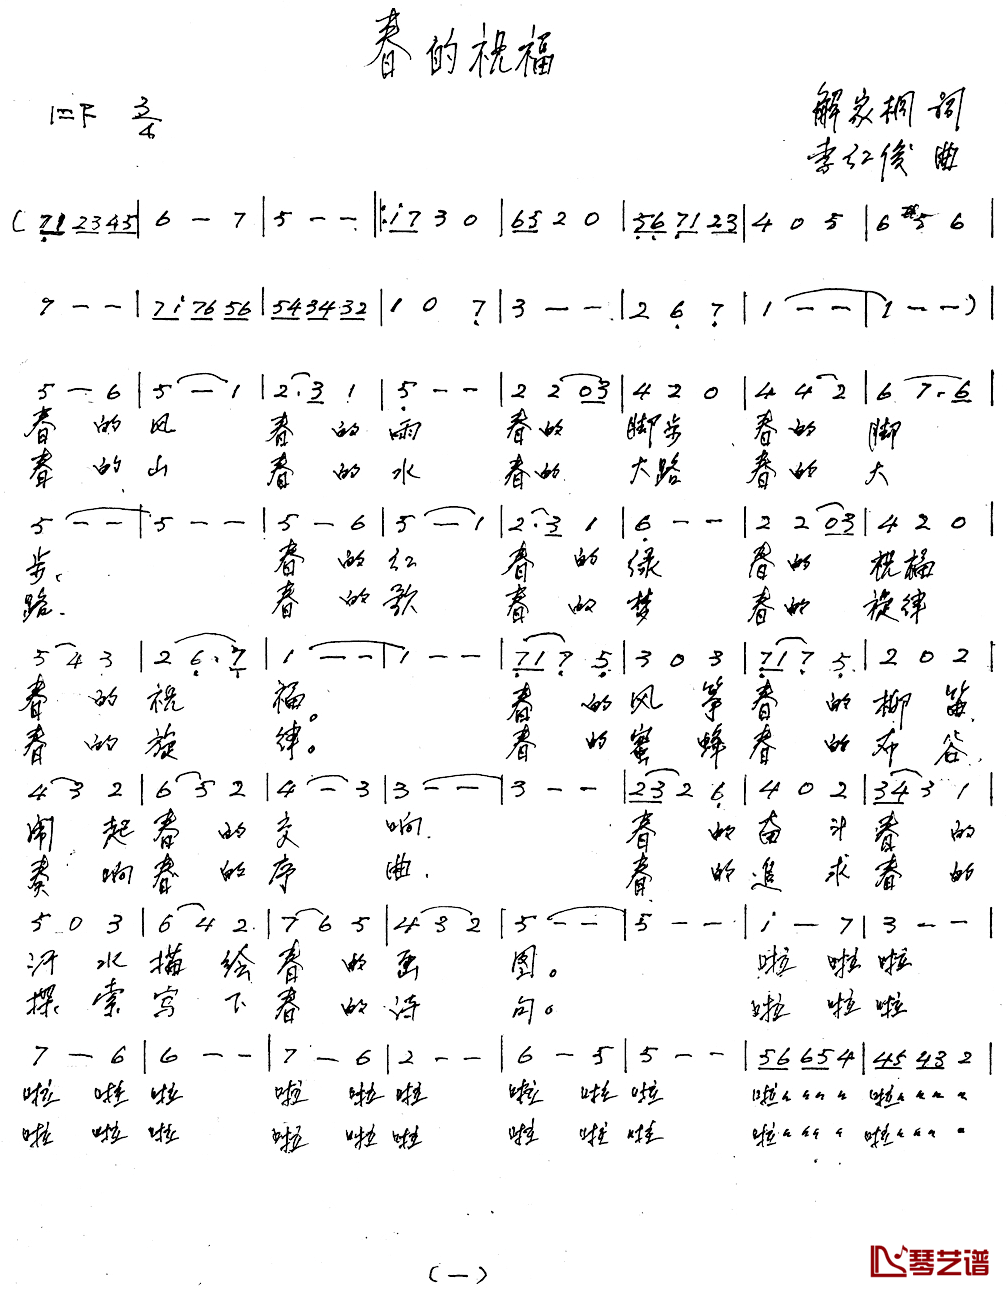 春的祝福
1=F 3/4
解家桐 词
李红俊 曲
( 71 2345 | 6 — 7 | 5 — — |: i7 3 0 | 65 2 0 | 56 71 23 | 4 0 5 | 6 5 6 |
7 — — | 7i 76 56 | 54 34 32 | 1 0 7 | 3 — — | 2 6 7 | 1 — — | 1 — — )
5 — 6 | 5 — 1 | 2·3 1 | 5 — — | 2 2 03 | 4 2 0 | 4 4 2 | 6 7·6 |
春 的 风 春 的 雨 春的 脚步 春的 脚
春 的 山 春 的 水 春的 大路 春的 大
5 — — | 5 — — | 5 — 6 | 5 — 1 | 2·3 1 | 6 — — | 2 2 03 | 4 2 0 |
步、 春 的 红 春 的 绿 春的 祝福
路. 春 的 歌 春 的 梦 春的 旋律
5 4 3 | 2 6·7 | 1 — — | 1 — — | 71 7 5 | 3 0 3 | 71 7 5 | 2 0 2 |
春 的 祝 福。 春 的 风 筝 春 的 柳 笛
春 的 旋 律。 春 的 蜜 蜂 春 的 布 谷
4 3 2 | 6 5 2 | 4 — 3 | 3 — — | 3 — — | 23 2 6 | 4 0 2 | 34 3 1 |
闹 起 春 的 交 响. 春 的 奋 斗 春 的
奏 响 春 的 序 曲. 春 的 追 求 春 的
5 0 3 | 6 4 2 | 7 6 5 | 4 3 2 | 5 — — | 5 — — | i — 7 | 3 — — |
汗 水 描 绘 春 的 画 图。 啦 啦 啦
探 索 写 下 春 的 诗 句。 啦 啦 啦
7 — 6 | 6 — — | 7 — 6 | 2 — — | 6 — 5 | 5 — — | 56 65 4 | 45 43 2 |
啦 啦 啦 啦 啦 啦 啦 啦 啦 啦〃〃〃〃 啦〃〃〃〃
啦 啦 啦 啦 啦 啦 啦 啦 啦 啦〃〃〃〃 啦〃〃〃〃
(一)
琴艺谱